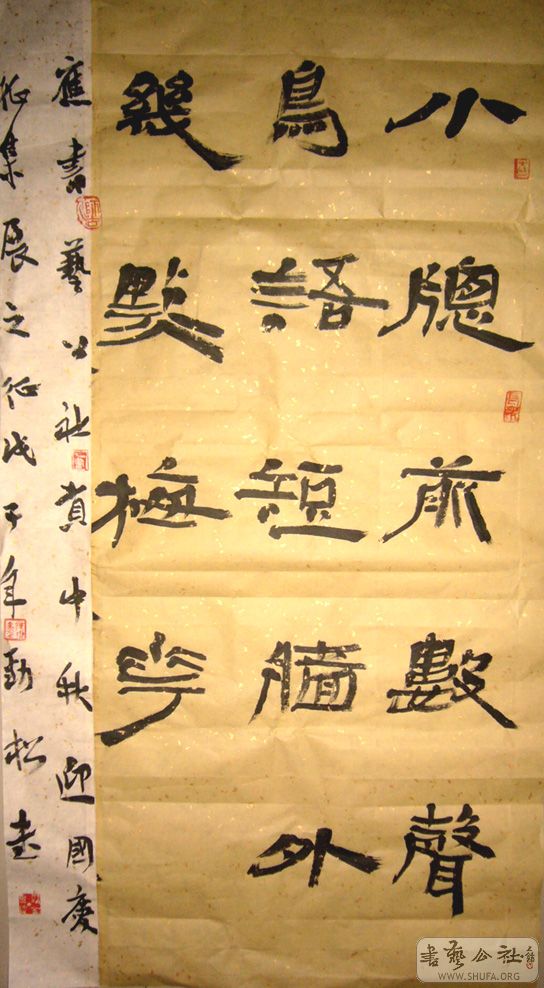 小牕前數聲
鳥語短牆外
幾點梅花
應書藝公社賞中秋迎國慶
征集展之征戊子年勁松書
書藝公社
WWW.SHUFA.ORG